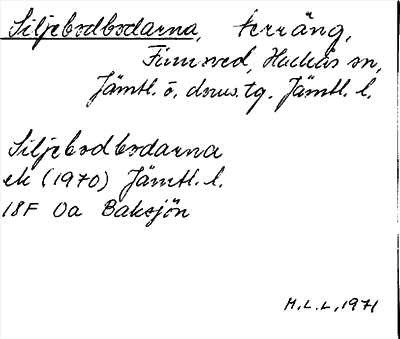 Siljebodbodarna, terräng,
Finnved, Hackås sn,
Jämtl. ö. doms.tg. Jämtl. l.
Siljebodbodarna
ek (1970) Jämtl. l.
18F 0a Baksjön
H.L.L., 1971